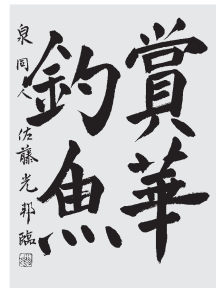 賞華
釣魚
泉同人 佐藤光邦臨